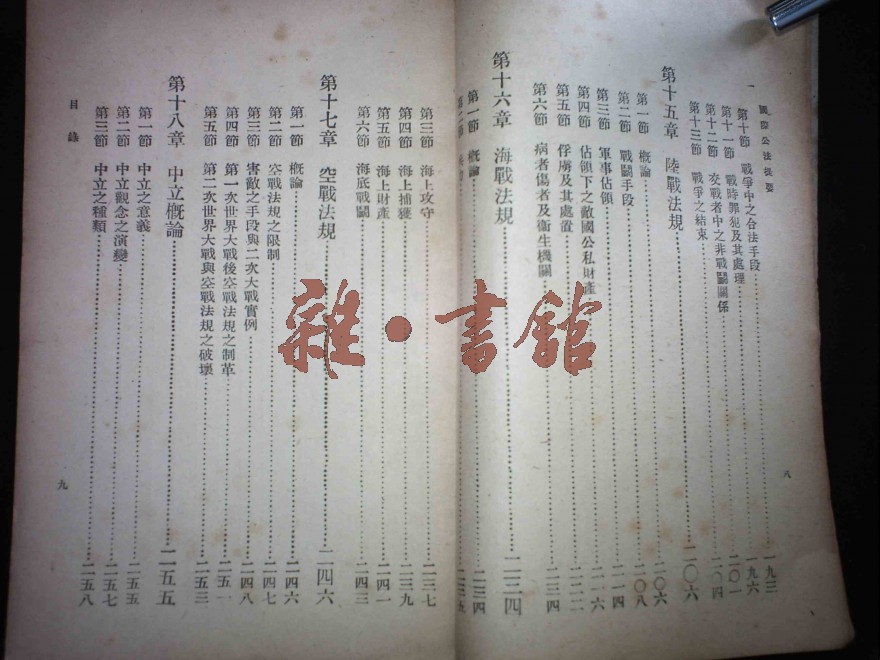 國際公法提要
第十節 戰爭中之合法手段 一九三
第十一節 戰時罪犯及其處理 一九六
第十二節 交戰者中之非戰鬪關係 二〇一
第十三節 戰爭之結束 二〇四
第十五章 陸戰法規 二〇六
第一節 概論 二〇六
第二節 戰鬪手段 二〇八
第三節 軍事佔領 二一四
第四節 佔領下之敵國公私財產 二一六
第五節 俘虜及其處置 二二二
第六節 病者傷者及衛生機關 二三四
第十六章 海戰法規 二三四
第一節 概論 二三四
第二節
八
第三節 海上攻守 二三七
第四節 海上捕獲 二三九
第五節 海上財產 二四一
第六節 海底戰鬪 二四三
第十七章 空戰法規 二四六
第一節 概論 二四六
第二節 空戰法規之限制 二四七
第三節 害敵之手段與二次大戰實例 二四八
第四節 第一次世界大戰後空戰法規之制革 二五一
第五節 第二次世界大戰與空戰法規之破壞 二五三
第十八章 中立概論 二五五
第一節 中立之意義 二五五
第二節 中立觀念之演變 二五七
第三節 中立之種類 二五八
目錄
九
雜·書館